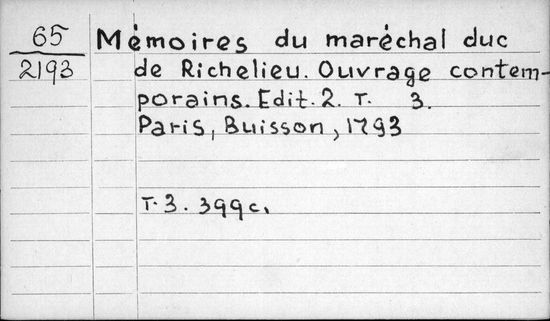 65
2193
Mémoires du maréchal duc
de Richelieu. Ouvrage contem-
porains. Edit. 2. T. 3.
Paris, Buisson, 1793
T. 3. 399 c.